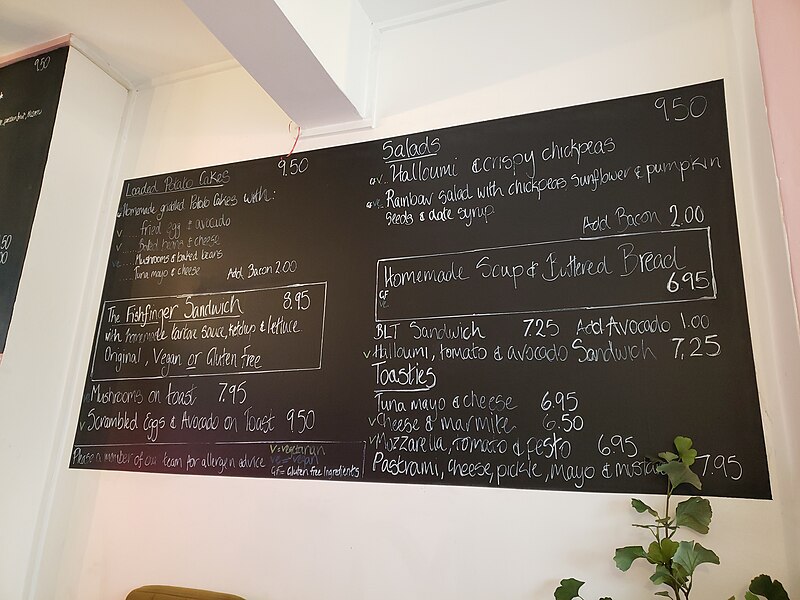 9.50
Loaded Potato Cakes 9.50
Homemade griddled Potato Cakes with:
V ... fried egg & avocado
V ... Baked beans & cheese
ve ... Mushrooms & baked beans
Tuna mayo & cheese Add Bacon 2.00
The Fishfinger Sandwich 8.95
with homemade tartare sauce, ketchup & lettuce
Original, Vegan or Gluten Free
Mushrooms on toast 7.95
V Scrambled Eggs & Avocado on Toast 9.50
Please a member of our team for allergen advice
V = vegetarian
ve = vegan
GF = Gluten free Ingredients
Salads 9.50
Halloumi & crispy chickpeas
Rainbow salad with chickpeas sunflower & pumpkin
seeds & date syrup
Add Bacon 2.00
Homemade Soup & Buttered Bread
GF 6.95
ve
BLT Sandwich 7.25 Add Avocado 1.00
V Halloumi, tomato & avocado Sandwich 7.25
Toasties
Tuna mayo & cheese 6.95
V Cheese & marmite 6.50
V Mozzarella, Tomato & Pesto 6.95
Pastrami, cheese, pickle, mayo & 7.95